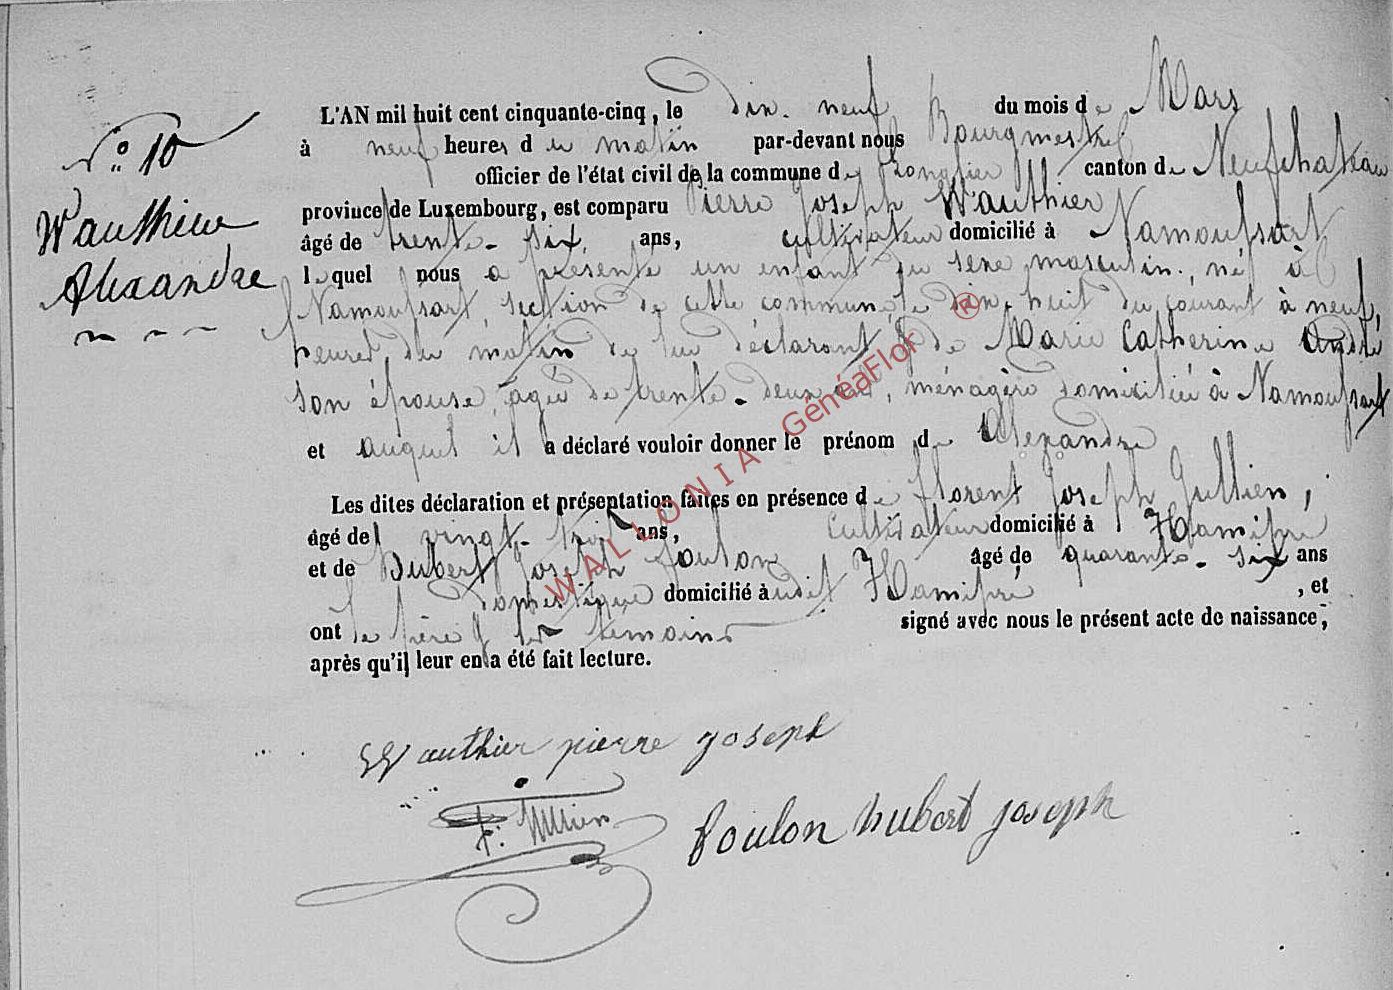 N.° 10
Wauthier
Alexandre
L'AN mil huit cent cinquante-cinq, le dix-neuf du mois de Mars
à neuf heures du matin par-devant nous Bourgmestre
officier de l'état civil de la commune de Longlier canton de Neufchateau
province de Luxembourg, est comparu Pierre Joseph Wauthier
âgé de trente-six ans, cultivateur domicilié à Namoussart
lequel nous a présenté un enfant du sexe masculin, né à
Namoussart, section de cette commune, le dix-huit du courant à neuf
heures du matin de lui déclarant & de Marie Catherine André
son épouse, agée de trente-deux ans, ménagère domiciliée à Namoussart
et auquel il a déclaré vouloir donner le prénom de Alexandre
Les dites déclaration et présentation faites en présence de Florent Joseph Jullien,
âgé de vingt-trois ans, cultivateur domicilié à Hamipré
et de Hubert Joseph Foulon âgé de quarante-six ans
domestique domicilié audit Hamipré, et
ont le père & les témoins signé avec nous le présent acte de naissance,
après qu'il leur en a été fait lecture.
Wauthier pierre joseph
F. Jullien
foulon hubert joseph
WALLONIA GénéaFlor ®